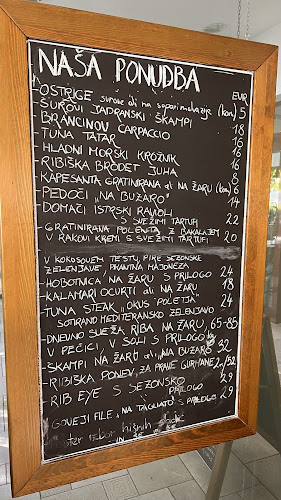 NAŠA PONUDBA
EUR
- OSTRIGE surove ali na sopari (kom) 5
- SUROVI JADRANSKI ŠKAMPI 18
- BRANCINOV CARPACCIO 16
- TUNA TATAR 16
- HLADNI MORSKI KROŽNIK 16
- RIBIŠKA BRODET JUHA 8
- KAPESANTA GRATINIRANA ali NA ŽARU (kom) 6
- PEDOČI „NA BUZARO" 14
- DOMAČI ISTRSKI RAVIOLI
S SVEŽIMI TARTUFI 22
- GRATINIRANA POLENTA Z BAKALAJEM
V RAKOVI KREMI S SVEŽIMI TARTUFI 20
V KOKOSOVEM TESTU, PIRE SEZONSKE
ZELENJAVE PIKANTNA MAJONEZA
- HOBOTNICA NA ŽARU S PRILOGO 24
- KALAMARI OCVRTI ali NA ŽARU 18
- TUNA STEAK „OKUS POLETJA" 24
SOTIRANO MEDITERANSKO ZELENJAVO
- DNEVNO SVEŽA RIBA NA ŽARU, 65-85
V PEČICI, V SOLI S PRILOGO
- ŠKAMPI NA ŽARU ali „NA BUZARO" 22
- RIBIŠKA PONEV, ZA PRAVE GURMANE 2/52
- RIB EYE S SEZONSKO
PRILOGO 29
- GOVEJI FILE „NA TAGLIATO" S PRILOGO 29
ter izbor hišnih
IN